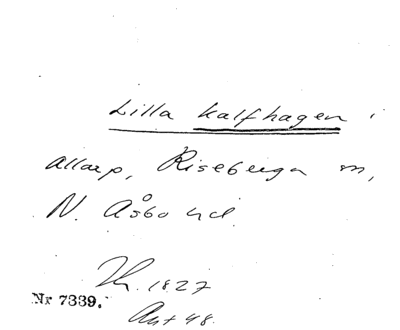 Lilla Kalfhagen i
Allarp, Riseberga sn,
N. Åsbo hd.
Th. 1827
Nr 7339.
Akt 48.